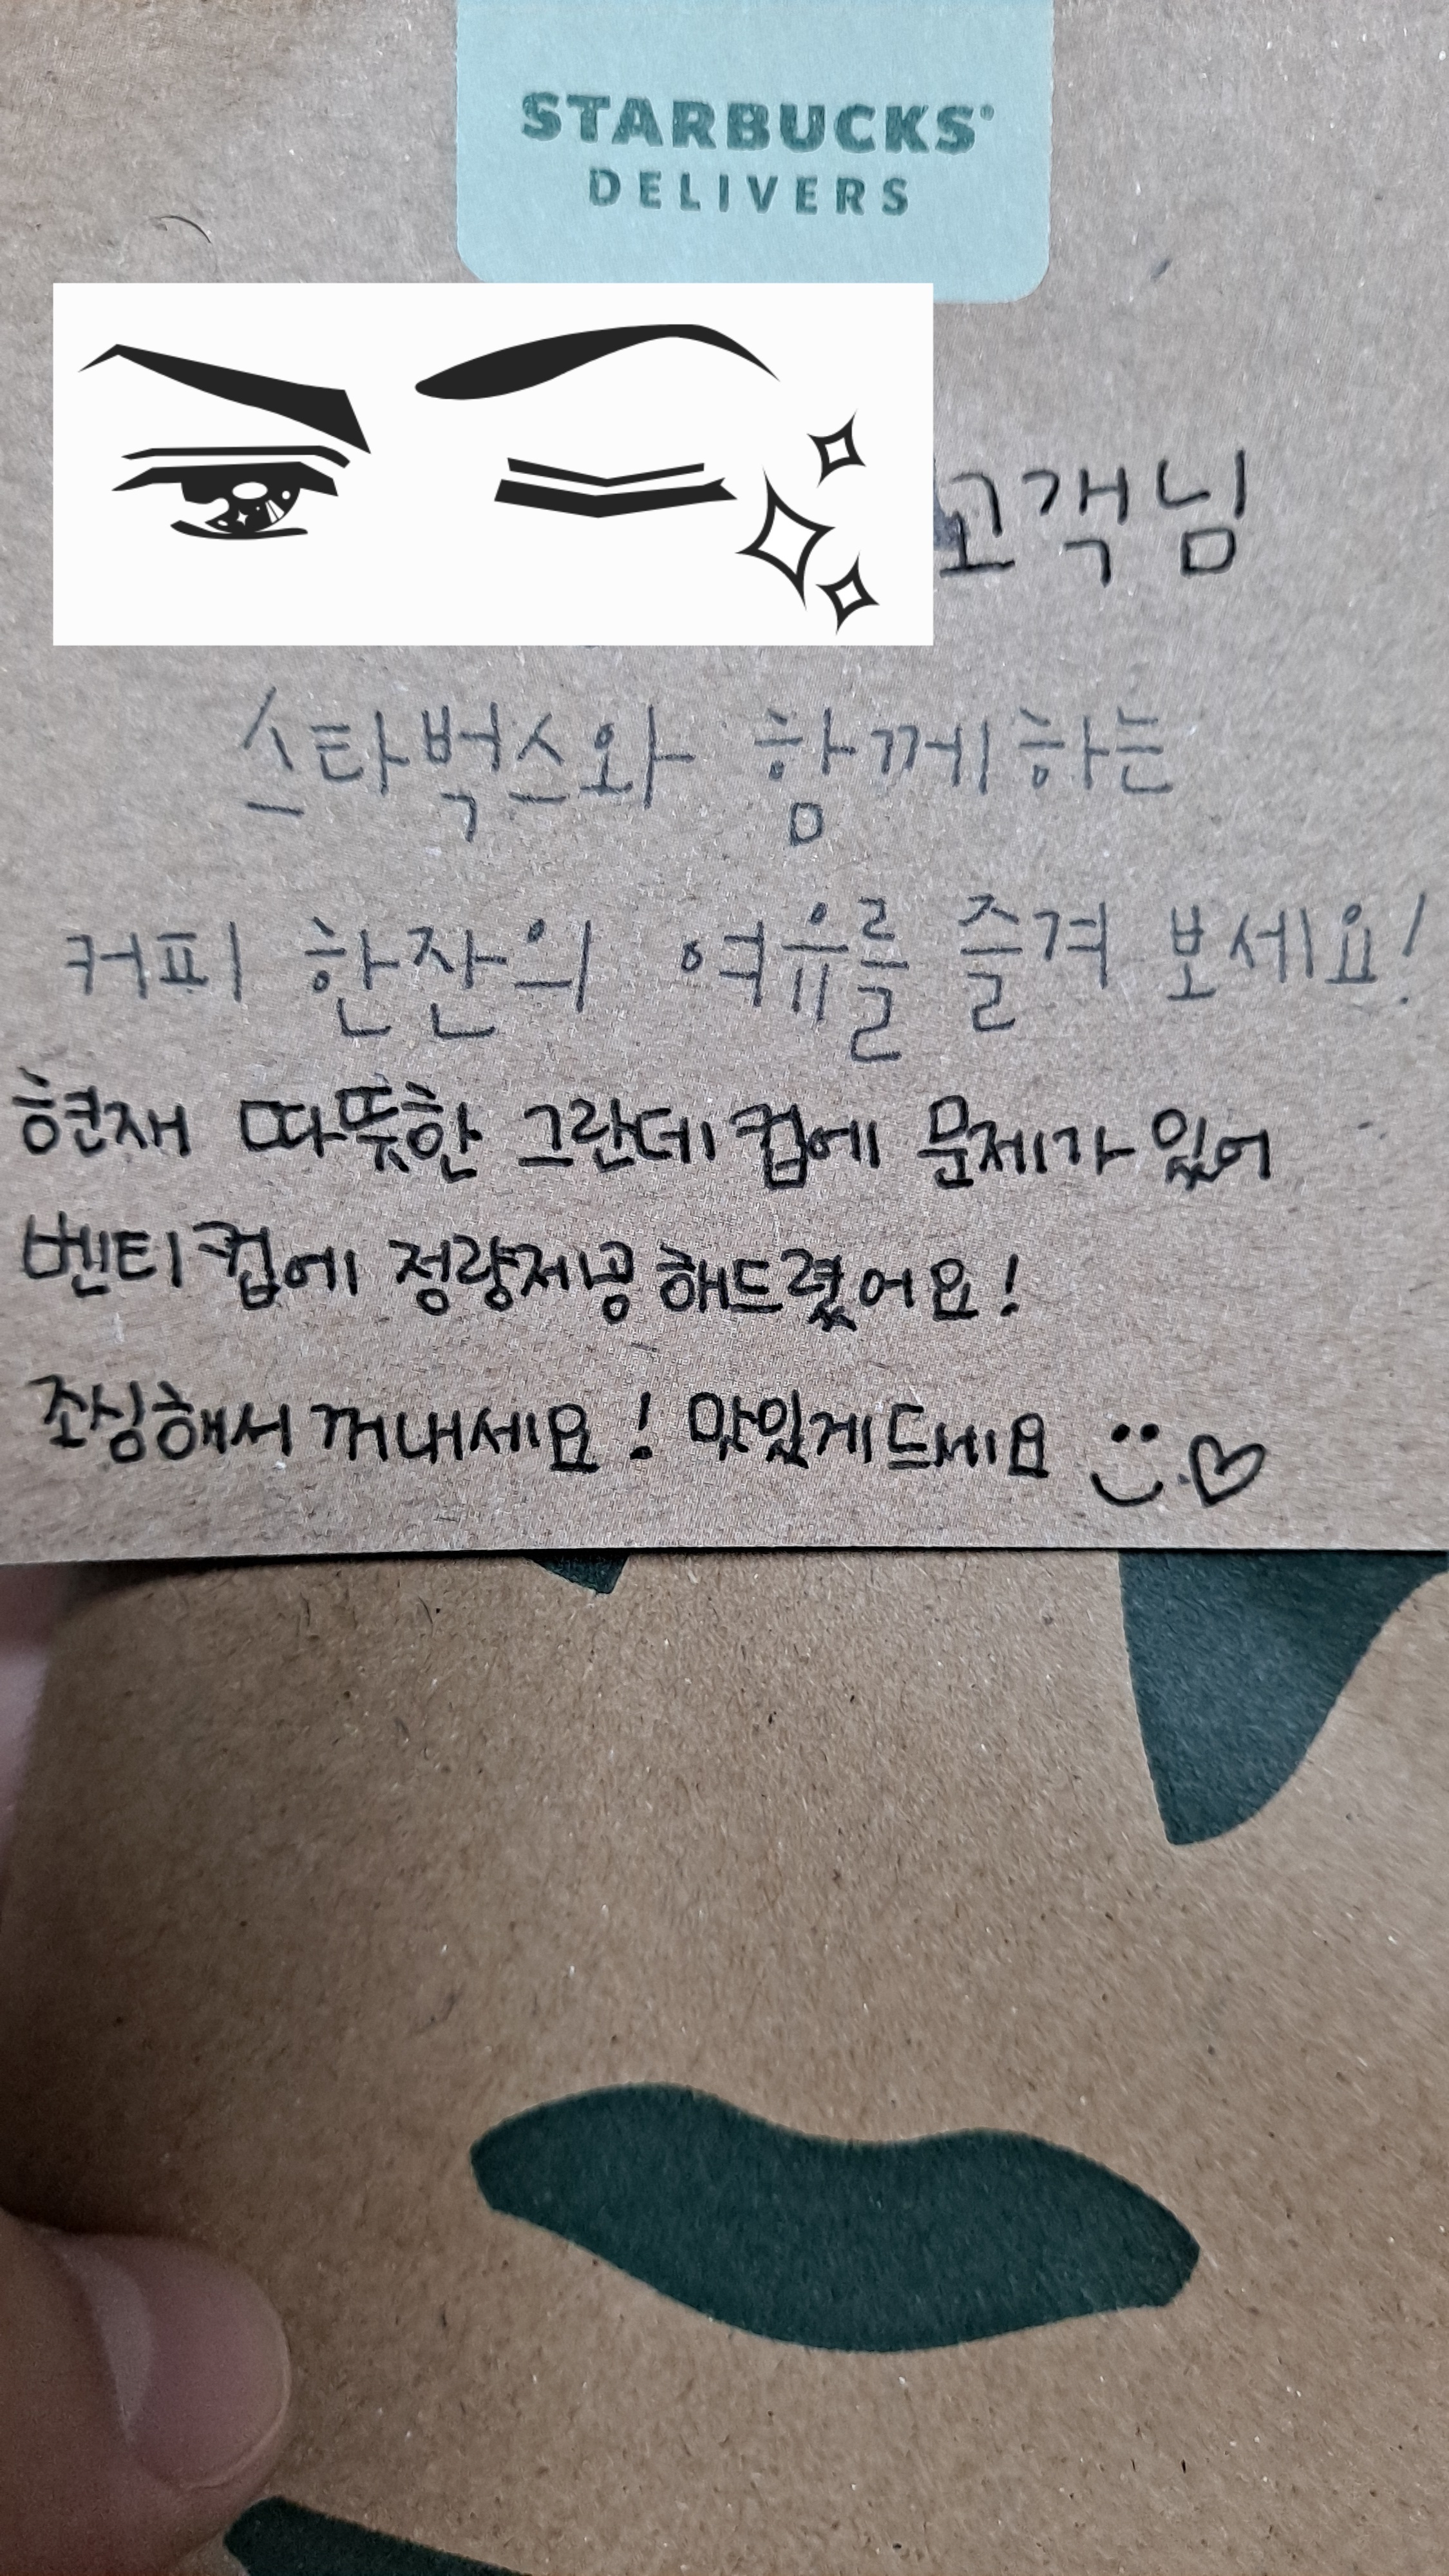 STARBUCKS®
DELIVERS
고객님
스타벅스와 함께하는
커피 한잔의 여유를 즐겨 보세요!
현재 따뜻한 그란데컵에 문제가 있어
벤티컵에 정량제공 해드렸어요!
조심해서 꺼내세요! 맛있게드세요